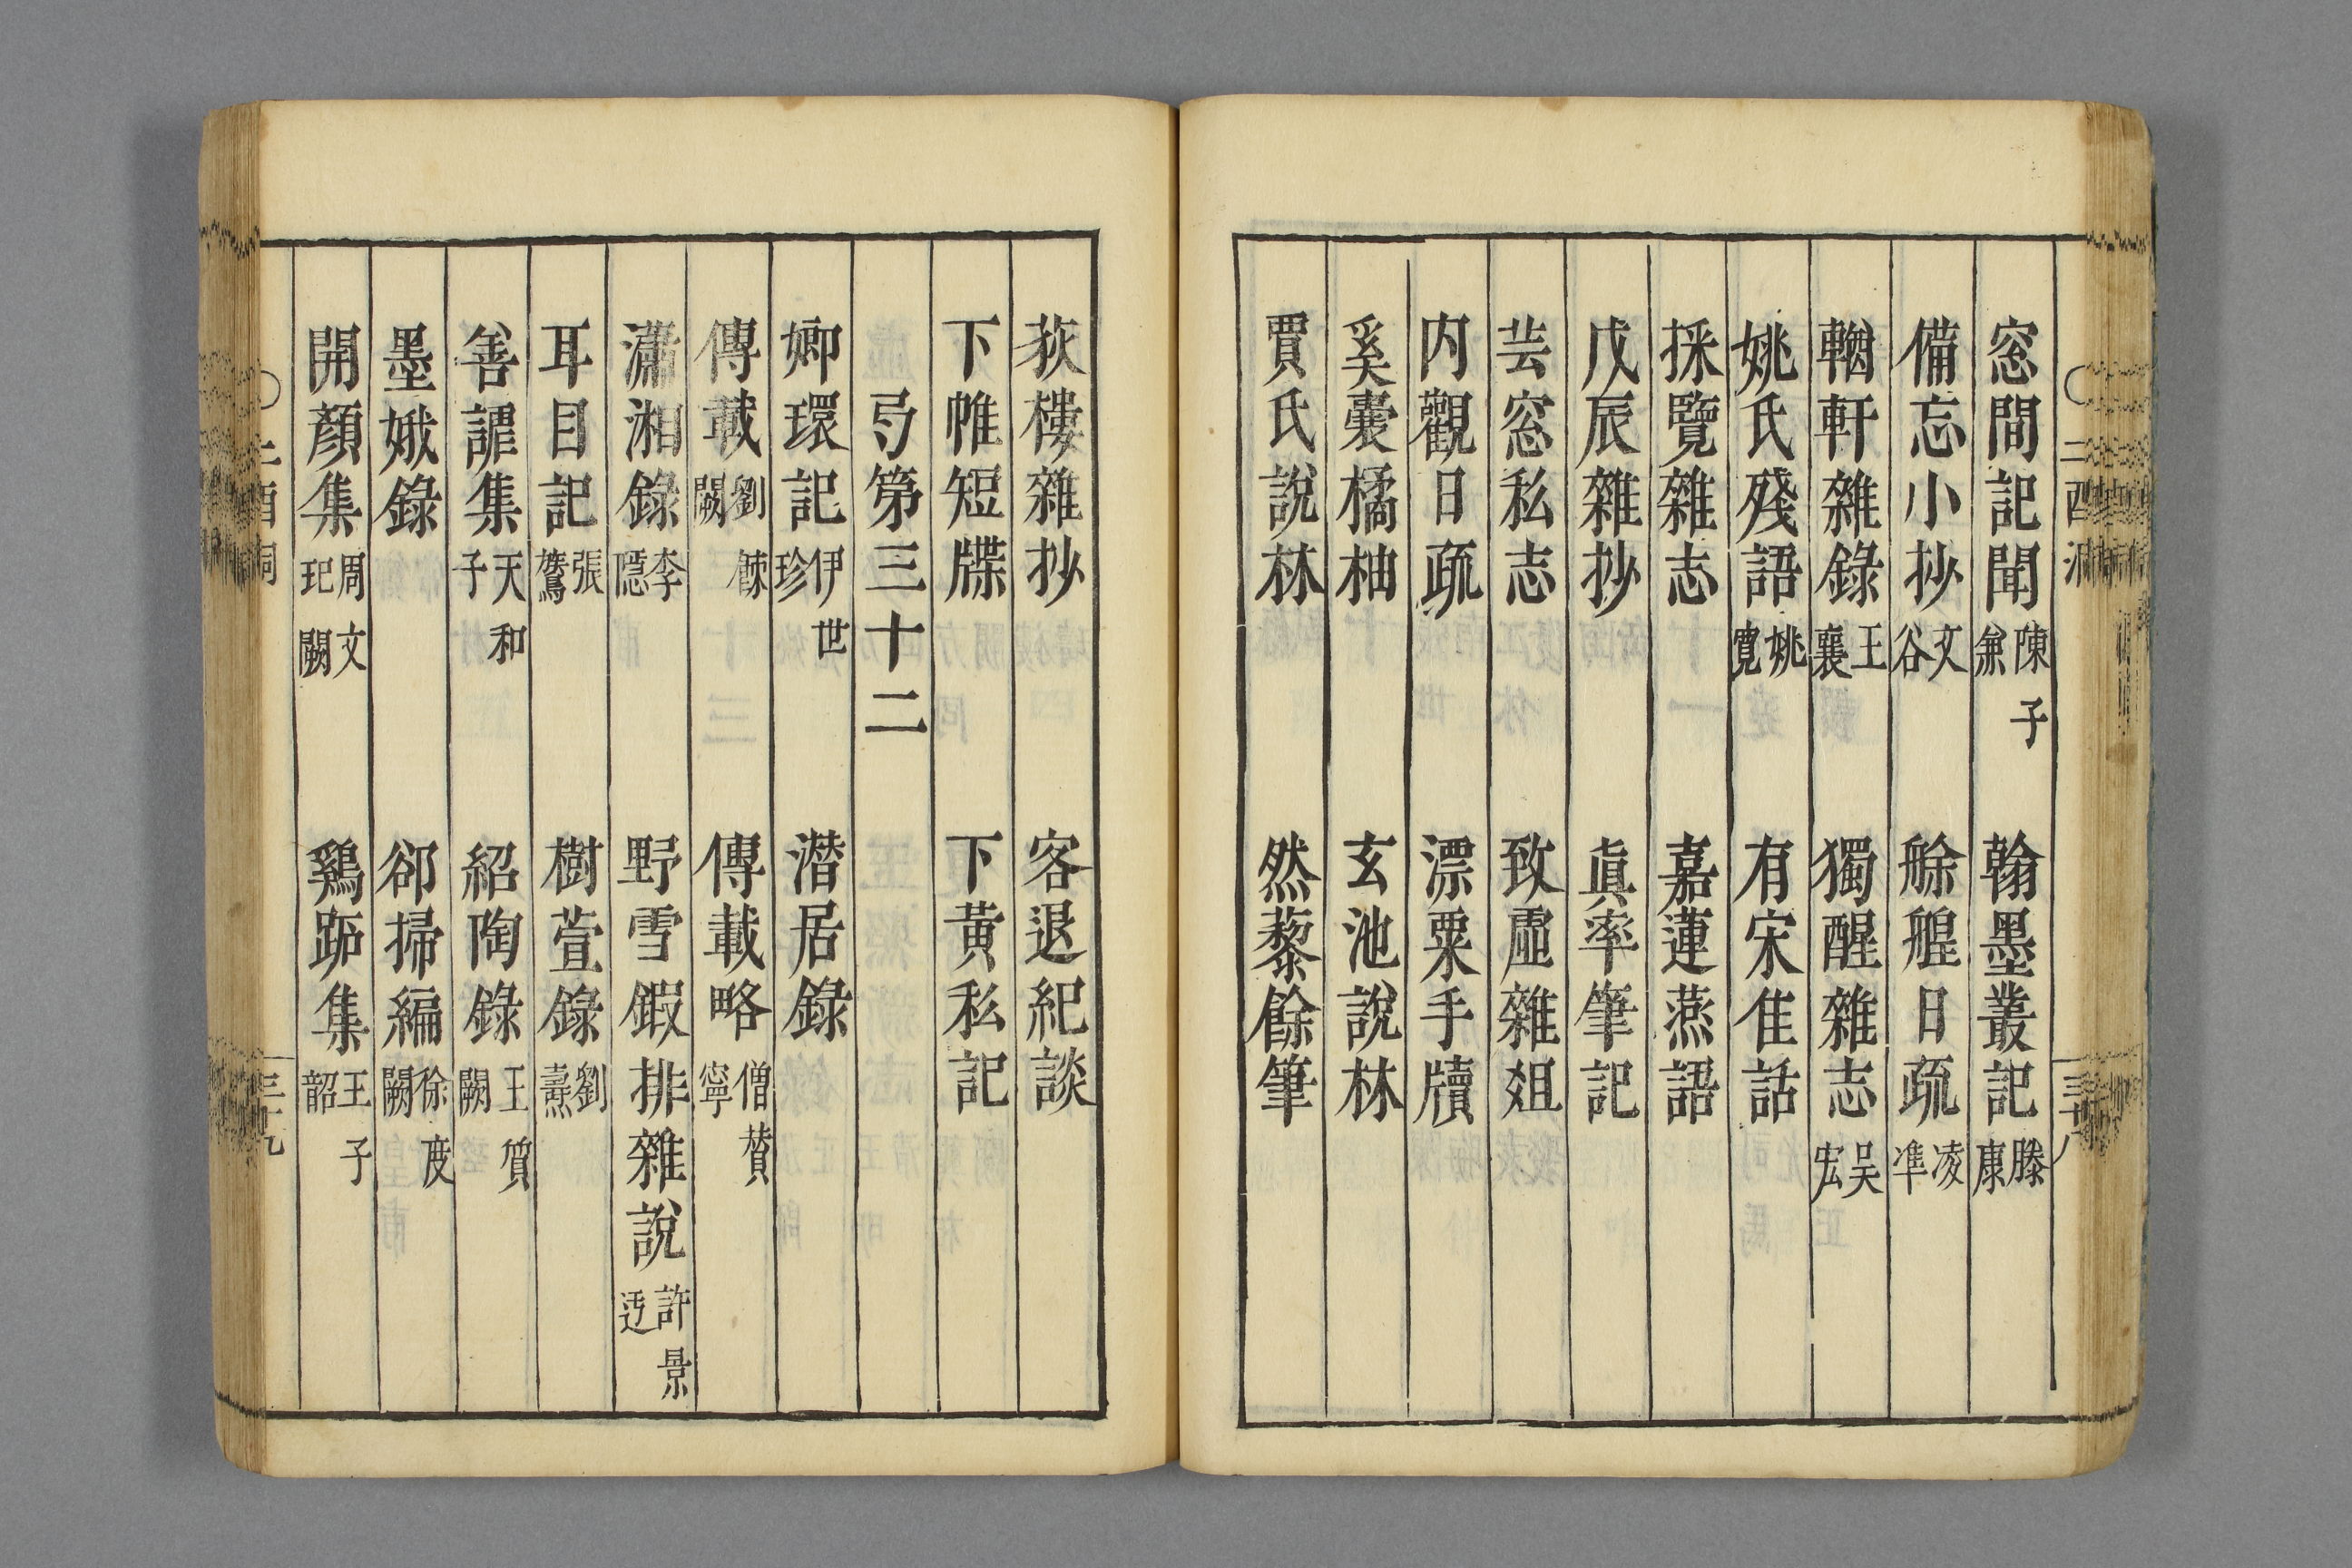 窓間記聞 陳子兼 翰墨叢記 滕康
備忘小抄 文谷 艅艎日疏 凌準
輶軒雜錄 王襄 獨醒雜志 吳宏
姚氏殘語 姚寬 有宋佳話
採覽雜志 嘉蓮燕語
戊辰雜抄 眞率筆記
芸窓私志 致虛雜俎
内觀日疏 漂粟手牘
奚囊橘柚 玄池說林
賈氏說林 然藜餘筆
荻樓雜抄 客退紀談
下帷短牒 下黄私記
弓第三十二
嫏環記 伊世珍 潛居錄
傳載 劉餗闕 傳載略 僧贊寧
瀟湘錄 李隱 野雪鍜排雜說 許景迂
耳目記 張鷟 樹萱錄 劉燾
善謔集 天和子 紹陶錄 王質闕
墨娥錄 郤掃編 徐度闕
開顏集 周文玘闕 鷄跖集 王子韶